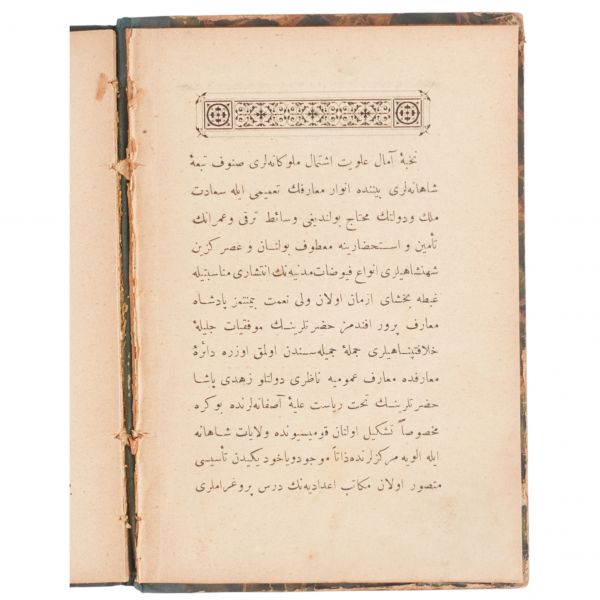 نخبهٔ آمال علویت اشتمال ملوکانه‌لری صنوف تبعهٔ
شاهانه‌لری بیننده انوار معارفك تعمیمی ایله سعادت
ملك و دولتك محتاج بولندیغی وسائط ترقی و عمرانك
تأمین و استحضارینه معطوف بولنان و عصر کزین
شهنشاهیلری انواع فیوضات مدنیه‌نك انتشاری مناسبتیله
غبطه بخشای ازمان اولان ولی نعمت بیمنتمز پادشاه
معارف پرور افندمز حضرتلرینك موفقیات جلیلهٔ
خلافتپناهیلری جملهٔ جمیله‌سندن اولمق اوزره دائرهٔ
معارفده معارف عمومیه ناظری دولتلو زهدی پاشا
حضرتلرینك تحت ریاست علیهٔ آصفانه‌لرنده بوکره
مخصوصاً تشکیل اولنان قومیسیونده ولایات شاهانه
ایله الویه مرکزلرنده ذاتاً موجود و یاخود یکیدن تأسیسی
متصور اولان مکاتب اعدادیه‌نك درس پروغراملری